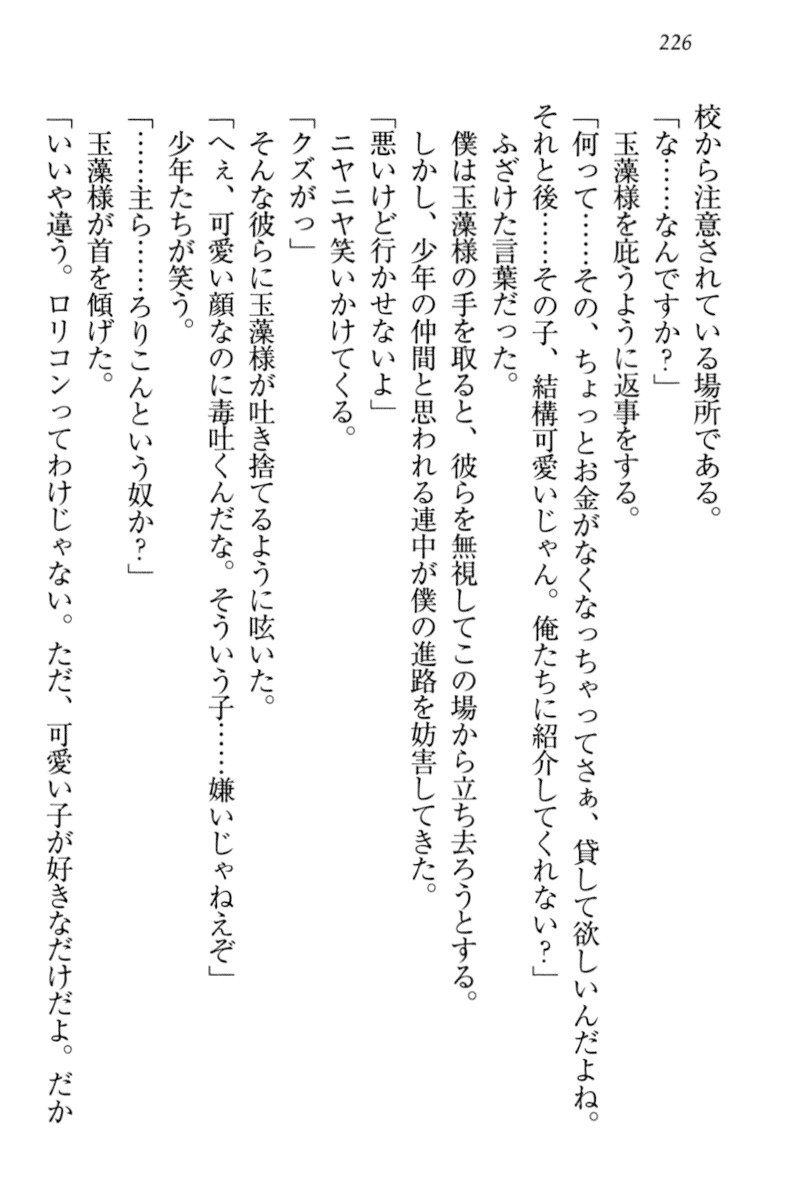 226
校から注意されている場所である。
「な……なんですか？」
玉藻様を庇うように返事をする。
「何って……その、ちょっとお金がなくなっちゃってさぁ、貸して欲しいんだよね。
それと後……その子、結構可愛いじゃん。俺たちに紹介してくれない？」
ふざけた言葉だった。
僕は玉藻様の手を取ると、彼らを無視してこの場から立ち去ろうとする。
しかし、少年の仲間と思われる連中が僕の進路を妨害してきた。
「悪いけど行かせないよ」
ニヤニヤ笑いかけてくる。
「クズがっ」
そんな彼らに玉藻様が吐き捨てるように呟いた。
「へぇ、可愛い顔なのに毒吐くんだな。そういう子……嫌いじゃねえぞ」
少年たちが笑う。
「……主ら……ろりこんという奴か？」
玉藻様が首を傾げた。
「いいや違う。ロリコンってわけじゃない。ただ、可愛い子が好きなだけだよ。だか